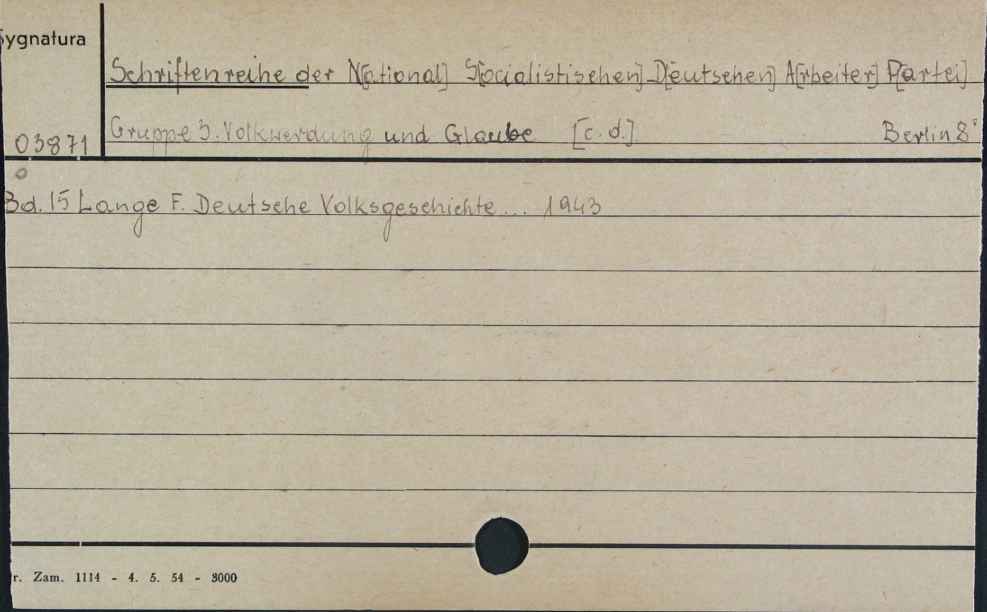 Sygnatura
Schriftenreihe der N[ational] S[ocialistischen] D[eutschen] A[rbeiter] P[artei]
03871
Gruppe 3. Volkwerdung und Glaube [c. d.] Berlin 8°
Bd. 15 Lange F. Deutsche Volksgeschichte... 1943
r. Zam. 1114 - 4. 5. 54 - 8000